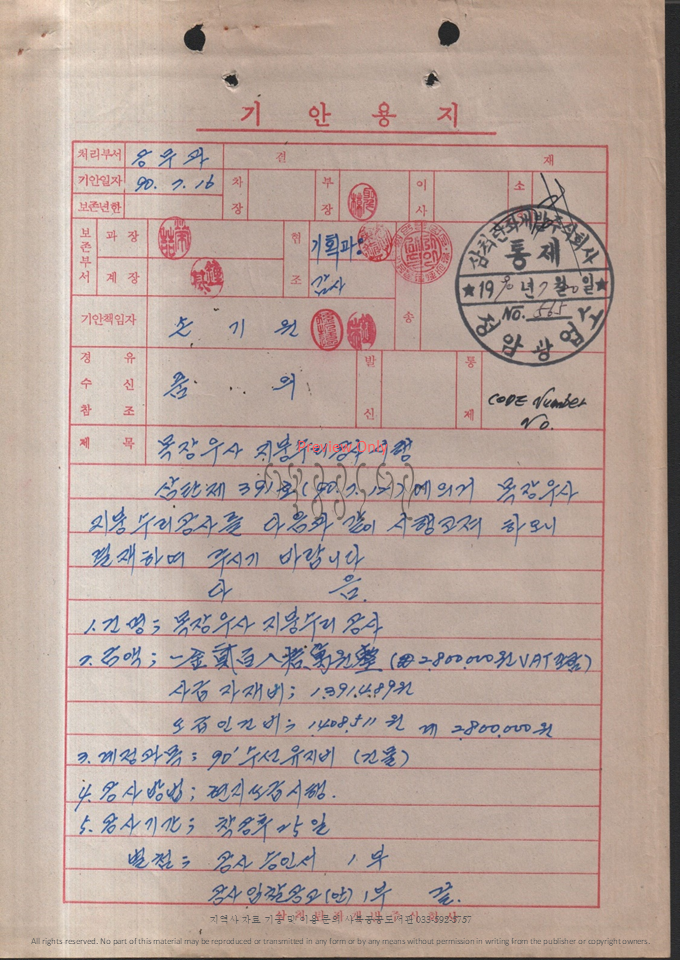 기 안 용 지
처리부서 총무과 결 재
기안일자 90. 7. 16 차장 부장 이사 소
보존년한
보존부서 과장 협조 기획과
계장 감사 송
기안책임자 손 기 원
삼척탄좌개발주식회사
통 제
1990년 7월 20일
NO. 565
정암광업소
경유 수신 참조 품 의 발신 통제
CODE Number
No.
제 목 목장우사 지붕수리공사 시행
Preview Only
삼탄제 391호(90. 7. )에 의거 목장우사
지붕수리공사를 다음과 같이 시행코져 하오니
결재하여 주시기 바랍니다
다 음.
1. 건명; 목장우사 지붕수리 공사
2. 금액; 一金貳百八拾萬원整 (₩2.800.000원 VAT포함)
사급자재비; 1.391.489원
도급인건비; 1.408.511원 계 2.800.000원
3. 계정과목; 90' 수선유지비 (건물)
4. 공사방법; 현지도급시행.
5. 공사기간; 착공후 25일
별첨; 공사승인서 1부
공사입찰공고(안) 1부 끝.
지역사 자료 기증 및 이용문의 사북공공도서관 033-592-5757
All rights reserved. No part of this material may be reproduced or transmitted in any form or by any means without permission in writing from the publisher or copyright owners.